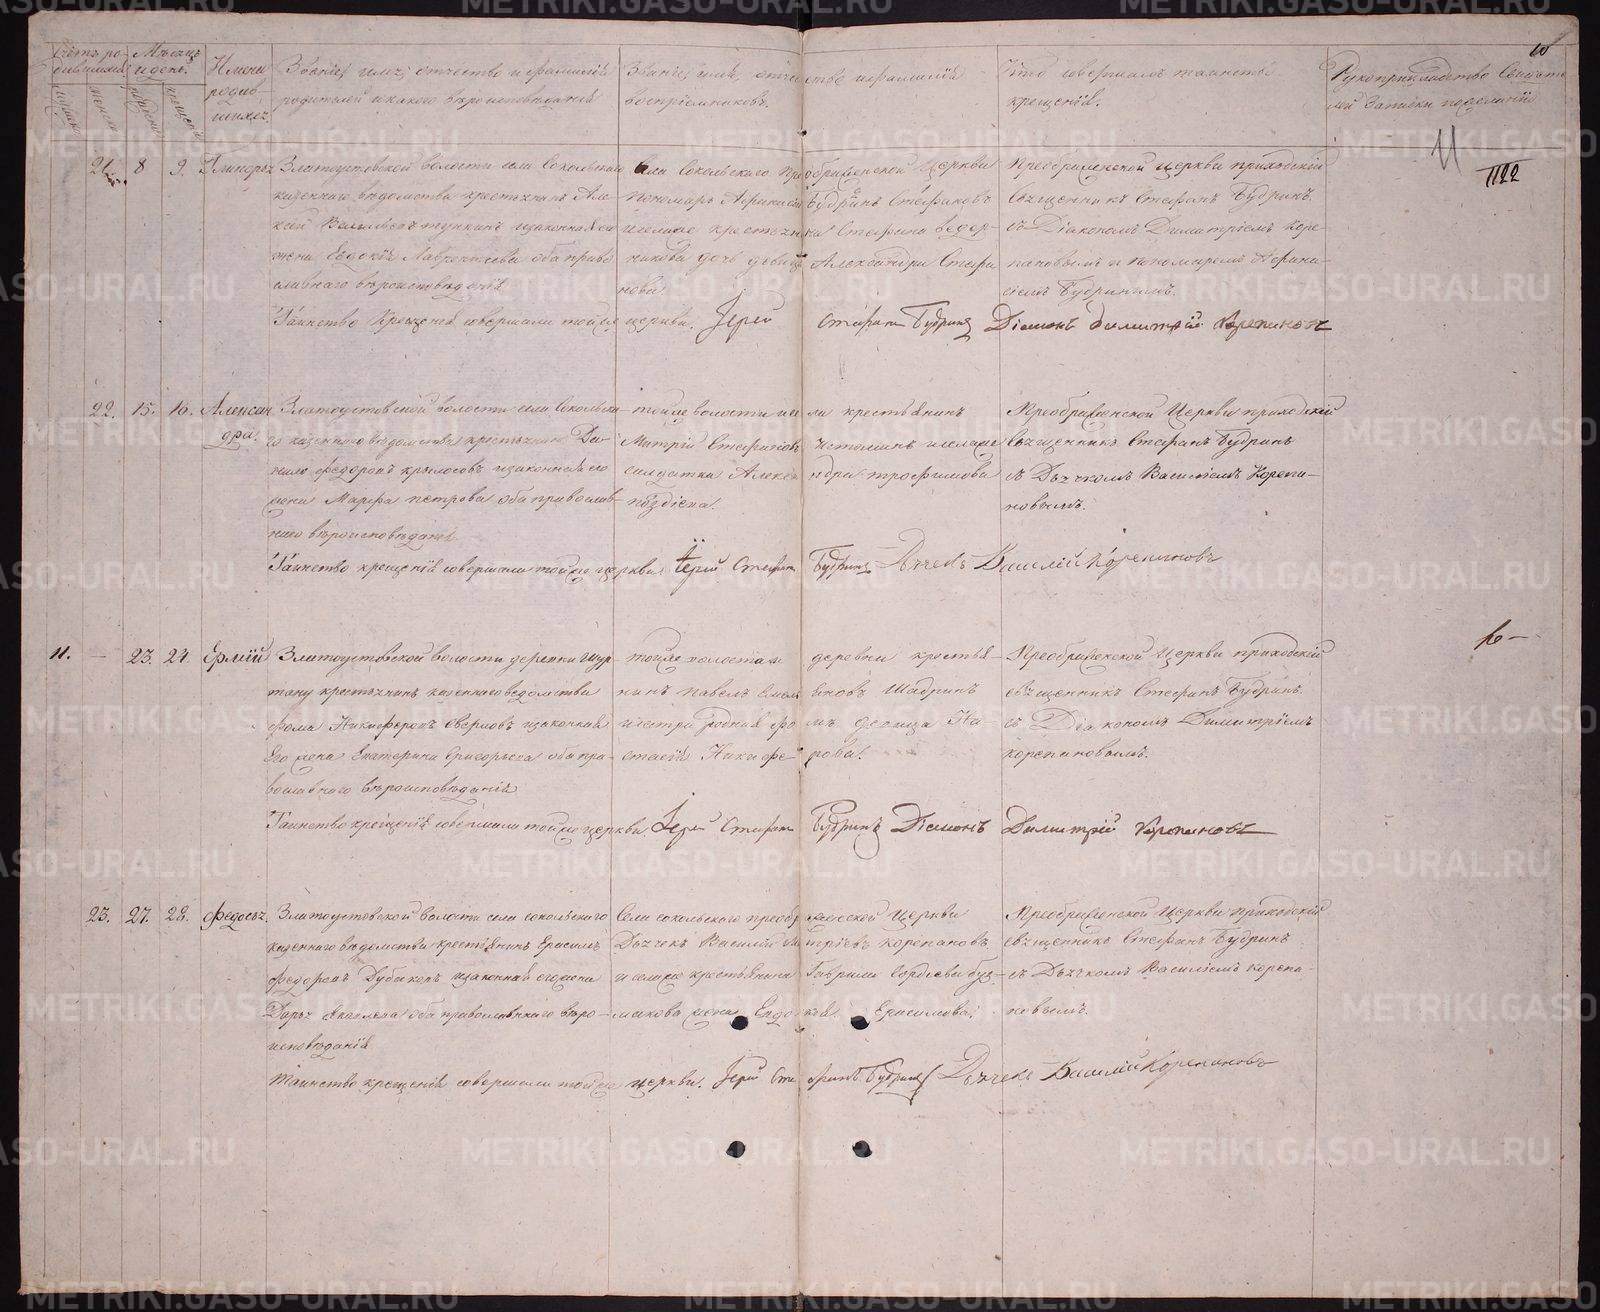 Счетъ ро-
дившихся
Мѣсяцъ
и день.
Имена
родив-
шихся.
Званіе, имя, отчество и фамилія
родителей и какого вѣроисповѣданія
Званіе, имя, отчество и фамилія
воспріемниковъ.
Кто совершалъ таинство
крещенія.
Рукоприкладство свидѣте
лей записки по желанію
10
11
1122
21. 8 9.
Златоустовской волости села Сокольскаго
казеннаго вѣдомства крестьянинъ Але
ксѣй
жена Евдокія Лаврентьева оба право
славнаго вѣроисповѣданія
села Сокольскаго Преображенской Церкви
пономарь Афанасій Будринъ Стефановъ
и селаже крестьянина Стефана Ведер-
никова дочь девица Александра Стефа
нова
Преображенской церкви приходскій
Священникъ Стефанъ Будринъ.
съ Діакономъ Димитріемъ Коре-
пановымъ и пономаремъ Афана-
сіемъ Будринымъ.
Таинство Крещенія совершали тойже церкви. Іерей Стефанъ Будринъ Діаконъ Димитрій Корепановъ
22. 15. 16. Алексан
дра.
Златоустовской волости села Сокольска-
го казеннаго вѣдомства крестьянинъ Да-
нило Федоровъ крылосовъ и законная его
жена Марфа петрова оба православ-
наго вѣроисповѣданія
тойже волости и села крестьянинъ
Митрій Стефановъ Истоминъ и селаже
солдатка Александра трофимова
поздіева.
Преображенской Церкви приходскій
Священникъ Стефанъ Будринъ
съ Дьячкомъ Василіемъ Корепа-
новымъ.
Таинство крещенія совершали тойже церкви. Іерей Стефанъ Будринъ Дьячекъ Василій Корепановъ
11. — 23. 24. Ермій
Златоустовской волости деревни Шур-
тану крестьянинъ казеннаго вѣдомства
фома Никифоровъ Сверловъ и законная
Его жена Екатерина Григорьева оба пра-
вославнаго вѣроисповѣданія
тойже волости и деревни крестья-
нинъ павелъ Емельяновъ Шадринъ
и сестра родная фомы девица На-
стасія Никифорова.
Преображенской Церкви приходскій
священникъ Стефанъ Будринъ.
съ Діакономъ Димитріемъ
корепановымъ.
Таинство крещенія совершали тойже церкви. Іерей Стефанъ Будринъ Діаконъ Димитрій Корепановъ
23. 27. 28. Федосья.
Златоустовской волости села сокольскаго
казеннаго вѣдомства крестьянинъ Ерасимъ
федоровъ Дубаковъ и законная его жена
Дарья Яковлева оба православнаго вѣро-
исповѣданія
Села сокольскаго преображенской Церкви
Дьячекъ Василій Димитріевъ корепановъ
и селаже крестьянина Гаврила Гордѣева
жена Евдокія Ерасимова.
Преображенской Церкви приходскій
священникъ Стефанъ Будринъ
съ Дьячкомъ Василіемъ корепа-
новымъ.
Таинство крещенія совершали тойже церкви. Іерей Стефанъ Будринъ Дьячекъ Василій Корепановъ
METRIKI.GASO-URAL.RU